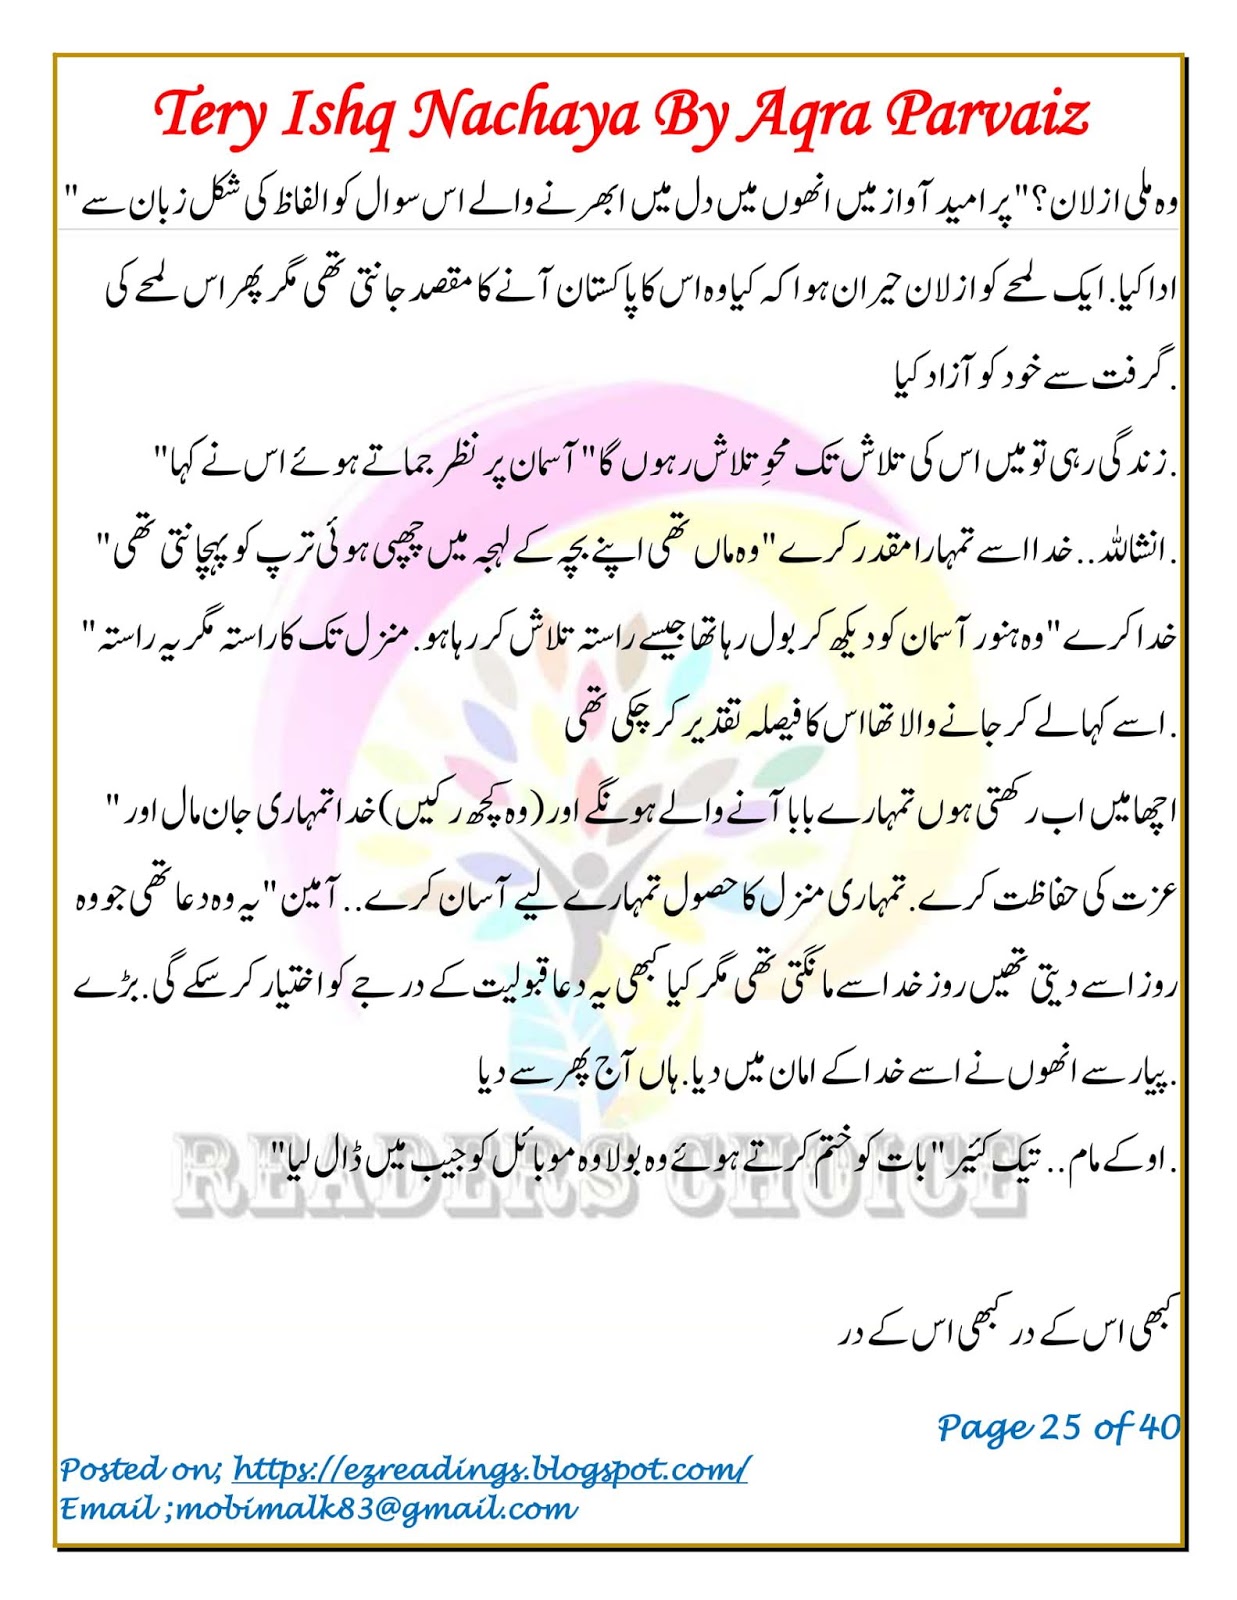 Tery Ishq Nachaya By Aqra Parvaiz
وہ ملی ازلان؟" پر امید آواز میں انھوں میں دل میں ابھرنے والے اس سوال کو الفاظ کی شکل زبان سے "
ادا کیا. ایک لمحے کو ازلان حیران ہوا کہ کیا وہ اس کا پاکستان آنے کا مقصد جانتی تھی مگر پھر اس لمحے کی
. گرفت سے خود کو آزاد کیا
. زندگی رہی تو میں اس کی تلاش تک محوِ تلاش رہوں گا" آسمان پر نظر جماتے ہوئے اس نے کہا"
. انشاللہ.. خدا اسے تمہارا مقدر کرے" وہ ماں تھی اپنے بچہ کے لہجہ میں چھپی ہوئی ترپ کو پہچانتی تھی"
خدا کرے" وہ ہنور آسمان کو دیکھ کر بول رہا تھا جیسے راستہ تلاش کر رہا ہو. منزل تک کا راستہ مگر یہ راستہ "
. اسے کہا لے کر جانے والا تھا اس کا فیصلہ تقدیر کر چکی تھی
اچھا میں اب رکھتی ہوں تمہارے بابا آنے والے ہونگے اور (وہ کچھ رکیں) خدا تمہاری جان مال اور "
عزت کی حفاظت کرے. تمہاری منزل کا حصول تمہارے لیے آسان کرے.. آمین" یہ وہ دعا تھی جو وہ
روز اسے دیتی تھیں روز خدا سے مانگتی تھی مگر کیا کبھی یہ دعا قبولیت کے درجے کو اختیار کر سکے گی. بڑے
. پیار سے انھوں نے اسے خدا کے امان میں دیا. ہاں آج پھر سے دیا
. اوکے مام.. تیک کئیر" بات کو ختم کرتے ہوئے وہ بولا وہ موبائل کو جیب میں ڈال لیا"
READERS CHOICE
کبھی اس کے در کبھی اس کے در
Page 25 of 40
Posted on; https://ezreadings.blogspot.com/
Email ;mobimalk83@gmail.com